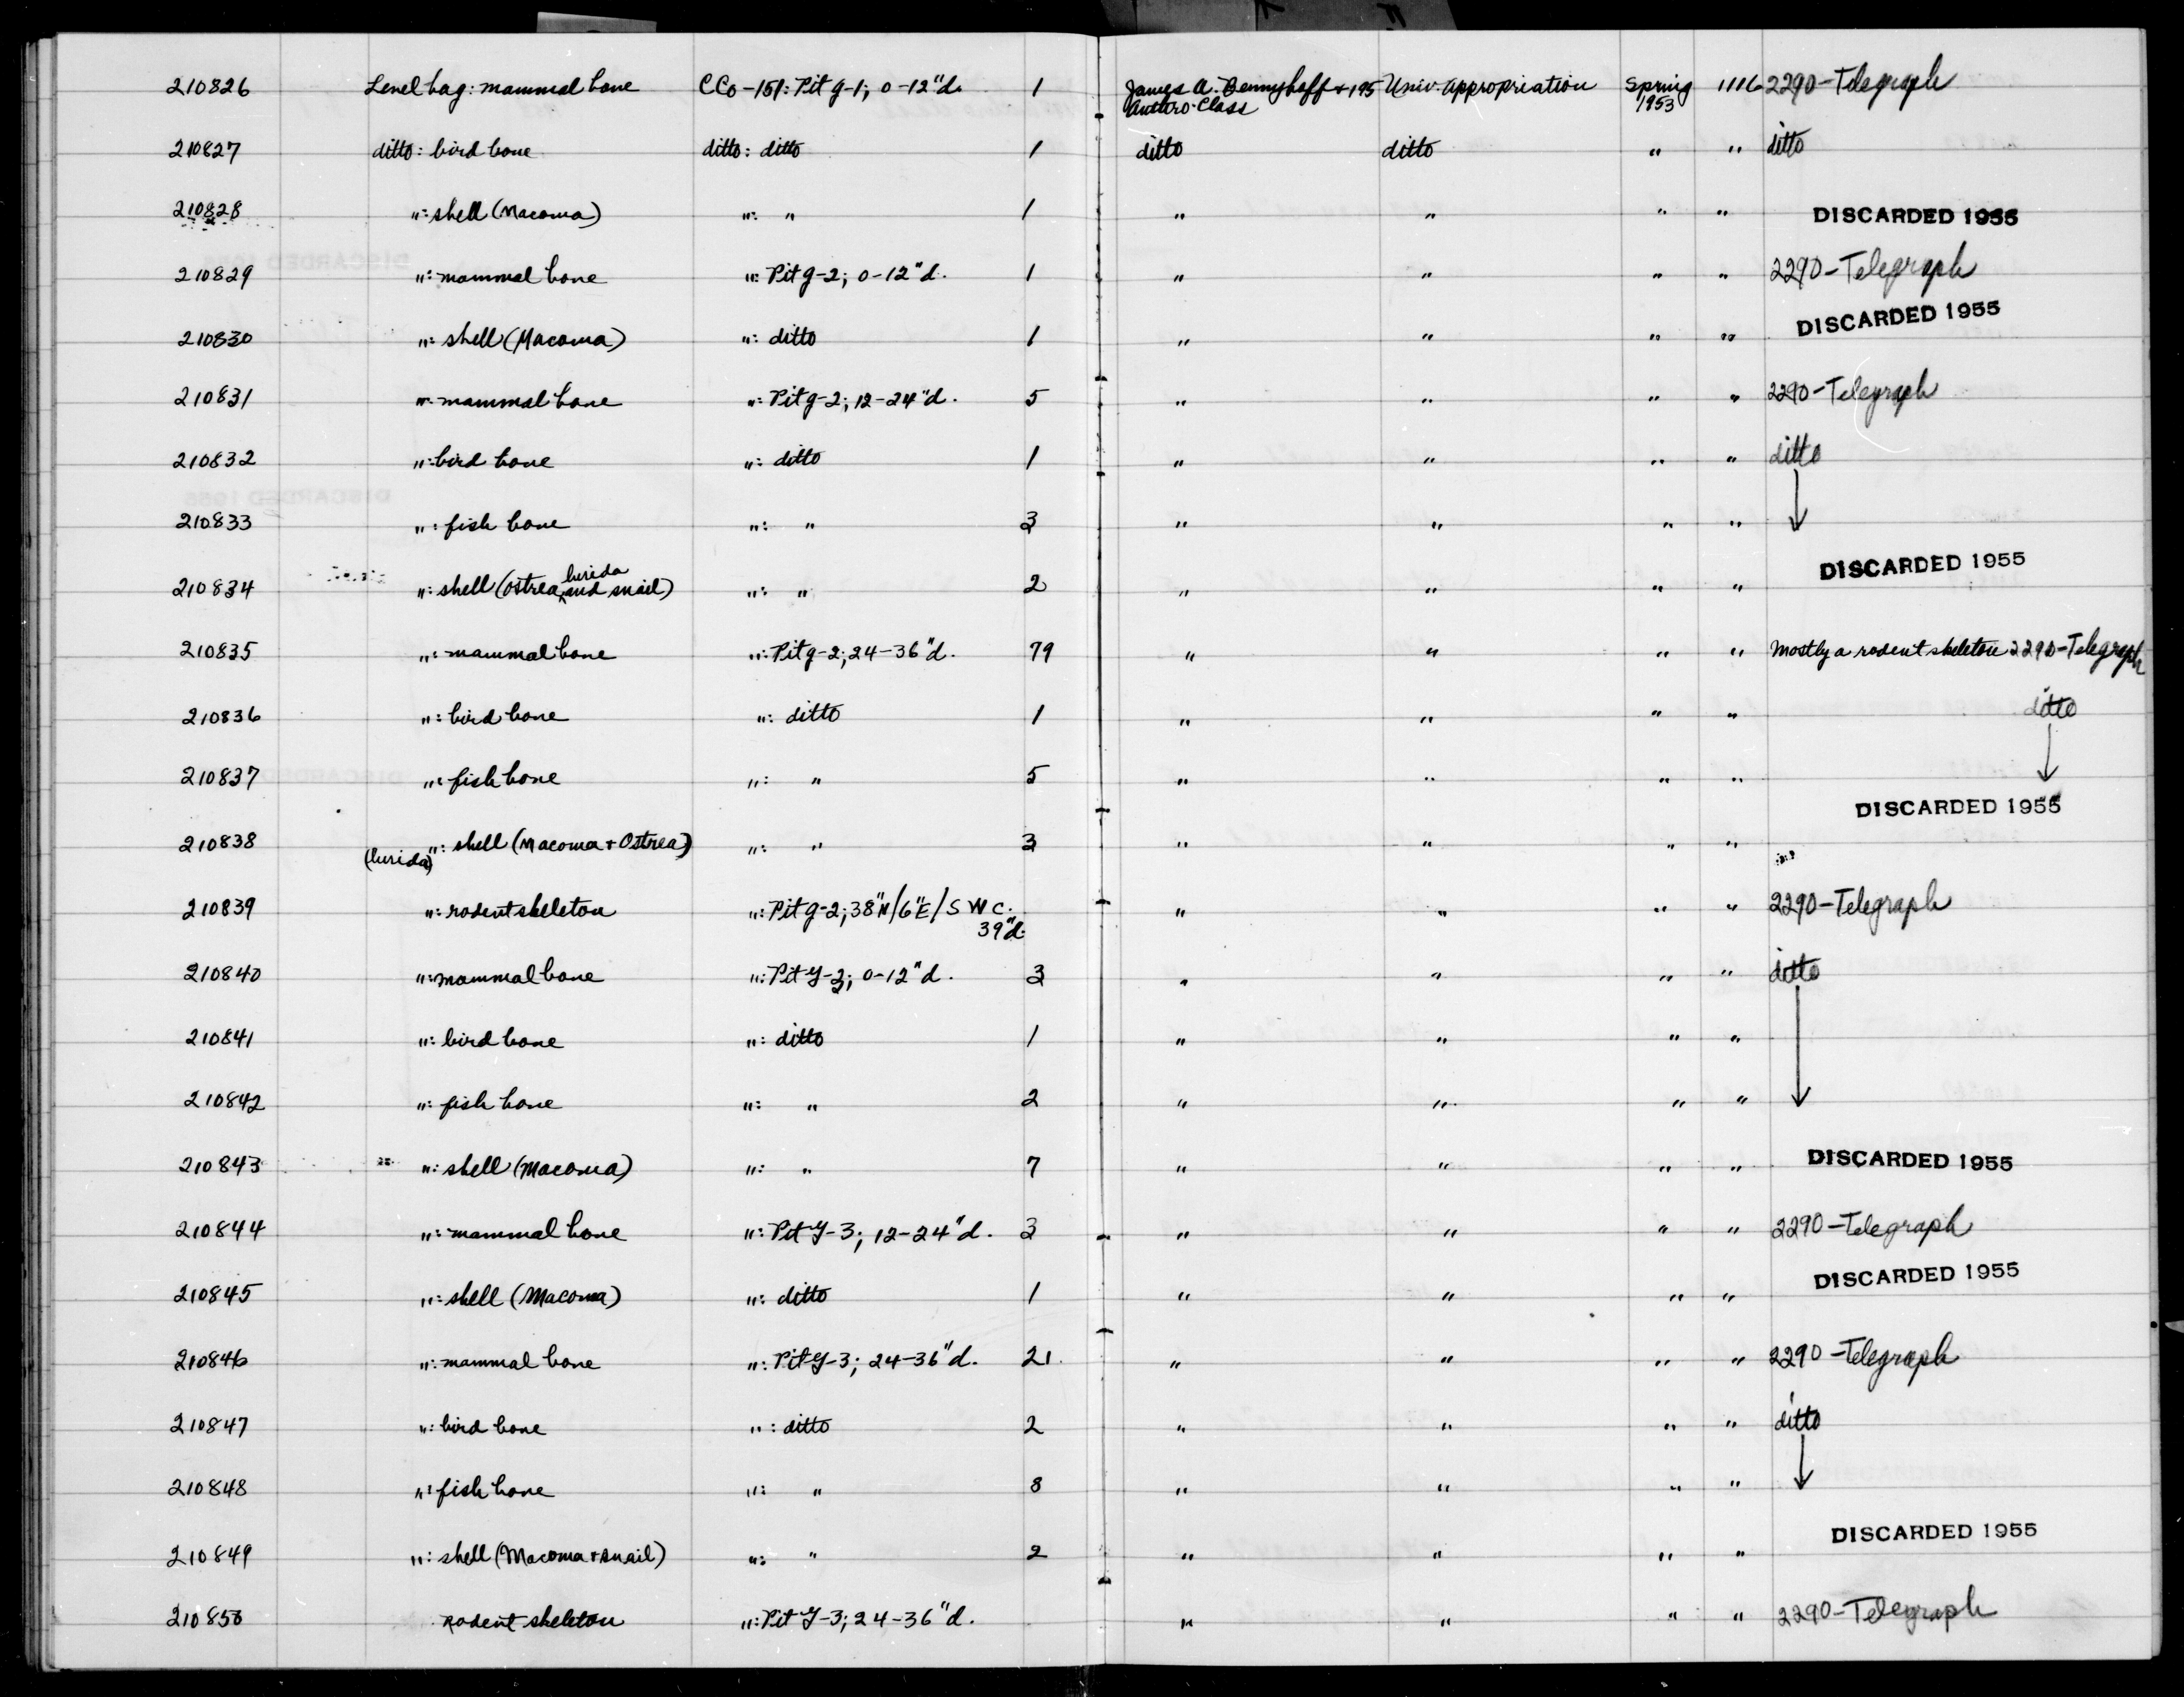 210826 Level bag: mammal bone CCo-151: Pit g-1; 0-12"d. 1 James A. Bennyhoff + 195 Anthro. Class Univ. Appropriation Spring 1953 1116 2290-Telegraph
210827 ditto: bird bone ditto: ditto 1 ditto ditto " " ditto
210828 ": shell (Macoma) ": " 1 " " " " DISCARDED 1955
210829 ": mammal bone ": Pit g-2; 0-12"d. 1 " " " " 2290-Telegraph
210830 ": shell (Macoma) ": ditto 1 " " " " DISCARDED 1955
210831 ": mammal bone ": Pit g-2; 12-24"d. 5 " " " " 2290-Telegraph
210832 ": bird bone ": ditto 1 " " " " ditto
210833 ": fish bone ": " 3 " " " " ↓
210834 ": shell (Ostrea lurida and snail) ": " 2 " " " " DISCARDED 1955
210835 ": mammal bone ": Pit g-2; 24-36"d. 79 " " " " Mostly a rodent skeleton 2290-Telegraph
210836 ": bird bone ": ditto 1 " " " " ditto
210837 ": fish bone ": " 5 " " " " ↓
210838 ": shell (Macoma + Ostrea) (lurida) ": " 3 " " " " DISCARDED 1955
210839 ": rodent skeleton ": Pit g-2; 38"N/6"E/SWC. 39"d. " " " " 2290-Telegraph
210840 ": mammal bone ": Pit Y-3; 0-12"d. 3 " " " " ditto
210841 ": bird bone ": ditto 1 " " " "
210842 ": fish bone ": " 2 " " " " ↓
210843 ": shell (Macoma) ": " 7 " " " " DISCARDED 1955
210844 ": mammal bone ": Pit Y-3; 12-24"d. 3 " " " " 2290-Telegraph
210845 ": shell (Macoma) ": ditto 1 " " " " DISCARDED 1955
210846 ": mammal bone ": Pit Y-3; 24-36"d. 21 " " " " 2290-Telegraph
210847 ": bird bone ": ditto 2 " " " " ditto
210848 ": fish bone ": " 8 " " " " ↓
210849 ": shell (Macoma + snail) ": " 2 " " " " DISCARDED 1955
210850 Rodent skeleton ": Pit Y-3; 24-36"d. " " " " 2290-Telegraph